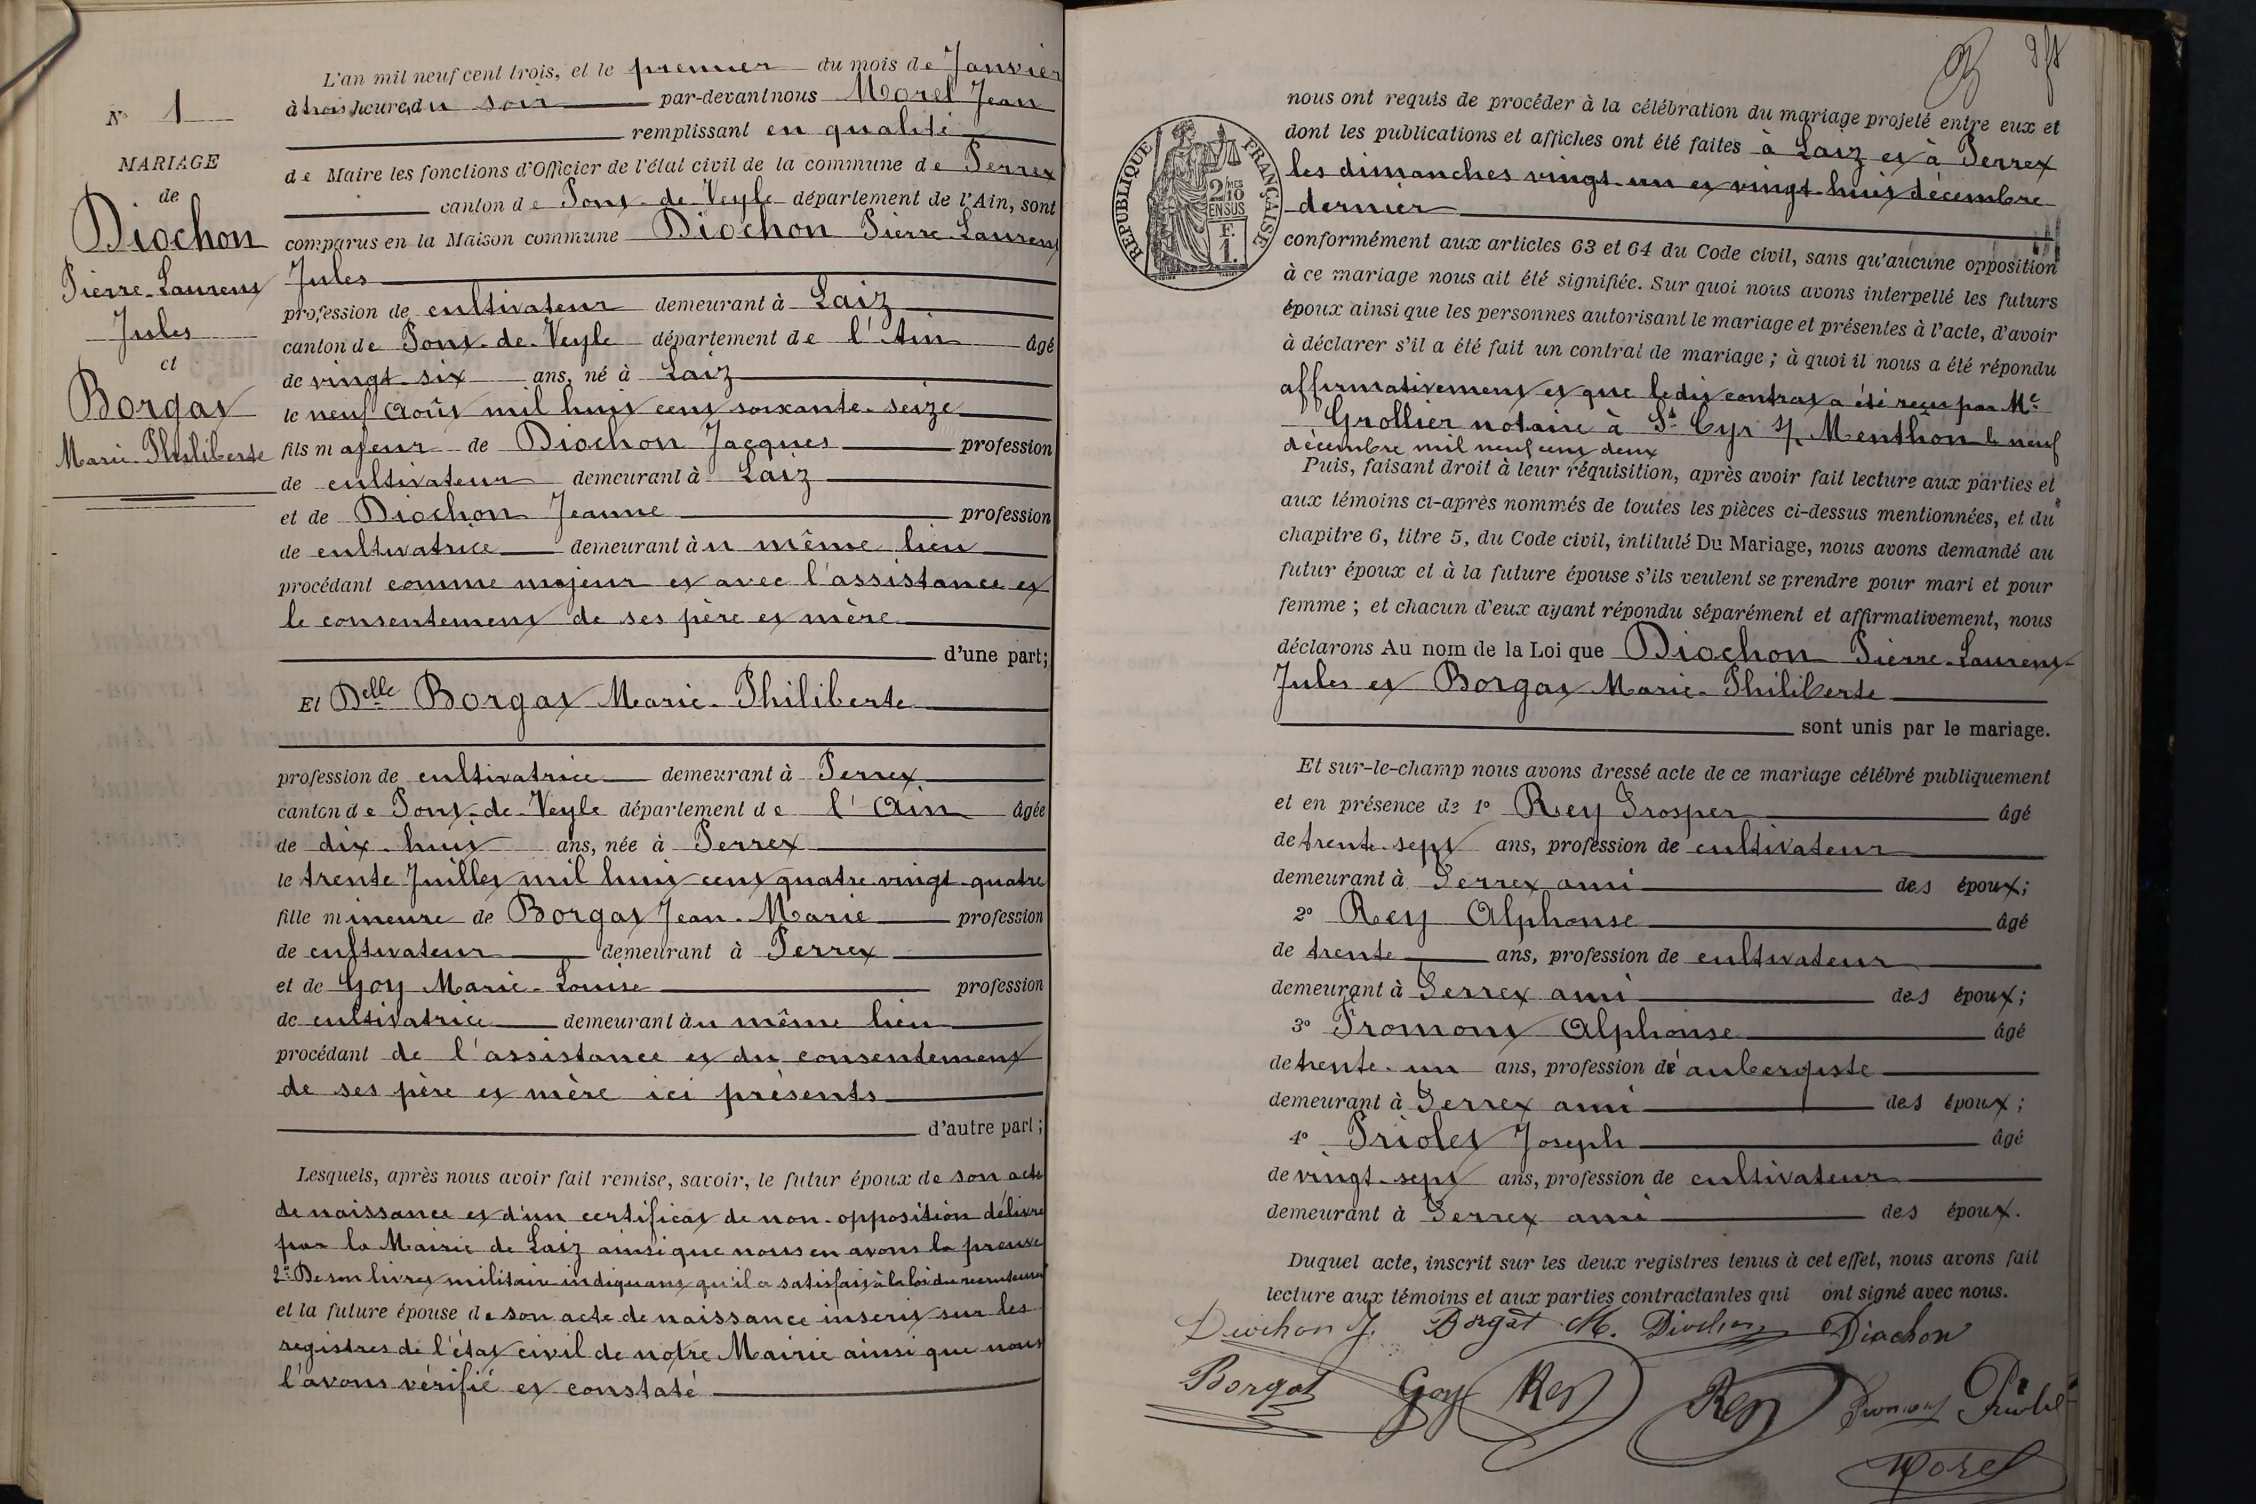 L'an mil neuf cent trois, et le premier du mois de Janvier
à trois heures du soir par-devant nous Morel Jean
remplissant en qualité
de Maire les fonctions d'Officier de l'état civil de la commune de Perrex
canton de Pont-de-Veyle département de l'Ain, sont
comparus en la Maison commune Diochon Pierre-Laurent
Jules
profession de cultivateur demeurant à Laiz
canton de Pont-de-Veyle département de l'Ain âgé
de vingt-six ans, né à Laiz
le neuf Août mil huit cent soixante-seize
fils majeur de Diochon Jacques profession
de cultivateur demeurant à Laiz
et de Diochon Jeanne profession
de cultivatrice demeurant au même lieu
procédant comme majeur et avec l'assistance et
le consentement de ses père et mère
d'une part;
Et Delle Borgat Marie-Philiberte
profession de cultivatrice demeurant à Perrex
canton de Pont-de-Veyle département de l'Ain âgée
de dix-huit ans, née à Perrex
le trente Juillet mil huit cent quatre-vingt-quatre
fille mineure de Borgat Jean-Marie profession
de cultivateur demeurant à Perrex
et de Goy Marie-Louise profession
de cultivatrice demeurant au même lieu
procédant de l'assistance et du consentement
de ses père et mère ici présents
d'autre part;
Lesquels, après nous avoir fait remise, savoir, le futur époux de son acte
de naissance et d'un certificat de non-opposition délivré
par la Mairie de Laiz ainsi que nous en avons la preuve
2° De son livret militaire indiquant qu'il a satisfait à la loi du recrutement
et la future épouse de son acte de naissance inscrit sur les
registres de l'état civil de notre Mairie ainsi que nous
l'avons vérifié et constaté
N° 1
MARIAGE
de
Diochon
Pierre-Laurent
Jules
et
Borgat
Marie-Philiberte
RÉPUBLIQUE FRANÇAISE
2 MES
10
EN SUS
F.
1.
nous ont requis de procéder à la célébration du mariage projeté entre eux et
dont les publications et affiches ont été faites à Laiz et à Perrex
les dimanches vingt-un et vingt-huit décembre
dernier
conformément aux articles 63 et 64 du Code civil, sans qu'aucune opposition
à ce mariage nous ait été signifiée. Sur quoi nous avons interpellé les futurs
époux ainsi que les personnes autorisant le mariage et présentes à l'acte, d'avoir
à déclarer s'il a été fait un contrat de mariage; à quoi il nous a été répondu
affirmativement et que ledit contrat a été reçu par Me
Grollier notaire à St Cyr s/ Menthon le neuf
décembre mil neuf cent deux
Puis, faisant droit à leur réquisition, après avoir fait lecture aux parties et
aux témoins ci-après nommés de toutes les pièces ci-dessus mentionnées, et du
chapitre 6, titre 5, du Code civil, intitulé Du Mariage, nous avons demandé au
futur époux et à la future épouse s'ils veulent se prendre pour mari et pour
femme; et chacun d'eux ayant répondu séparément et affirmativement, nous
déclarons Au nom de la Loi que Diochon Pierre-Laurent-
Jules et Borgat Marie-Philiberte
sont unis par le mariage.
Et sur-le-champ nous avons dressé acte de ce mariage célébré publiquement
et en présence de 1° Rey Prosper âgé
de trente-sept ans, profession de cultivateur
demeurant à Perrex ami des époux;
2° Rey Alphonse âgé
de trente ans, profession de cultivateur
demeurant à Perrex ami des époux;
3° Fromont Alphonse âgé
de trente-un ans, profession d'aubergiste
demeurant à Perrex ami des époux;
4° Priolet Joseph âgé
de vingt-sept ans, profession de cultivateur
demeurant à Perrex ami des époux.
Duquel acte, inscrit sur les deux registres tenus à cet effet, nous avons fait
lecture aux témoins et aux parties contractantes qui ont signé avec nous.
Diochon J. Borgat M. Diochon Diochon
Borgat Goy Rey Rey Fromont Priolet
Morel